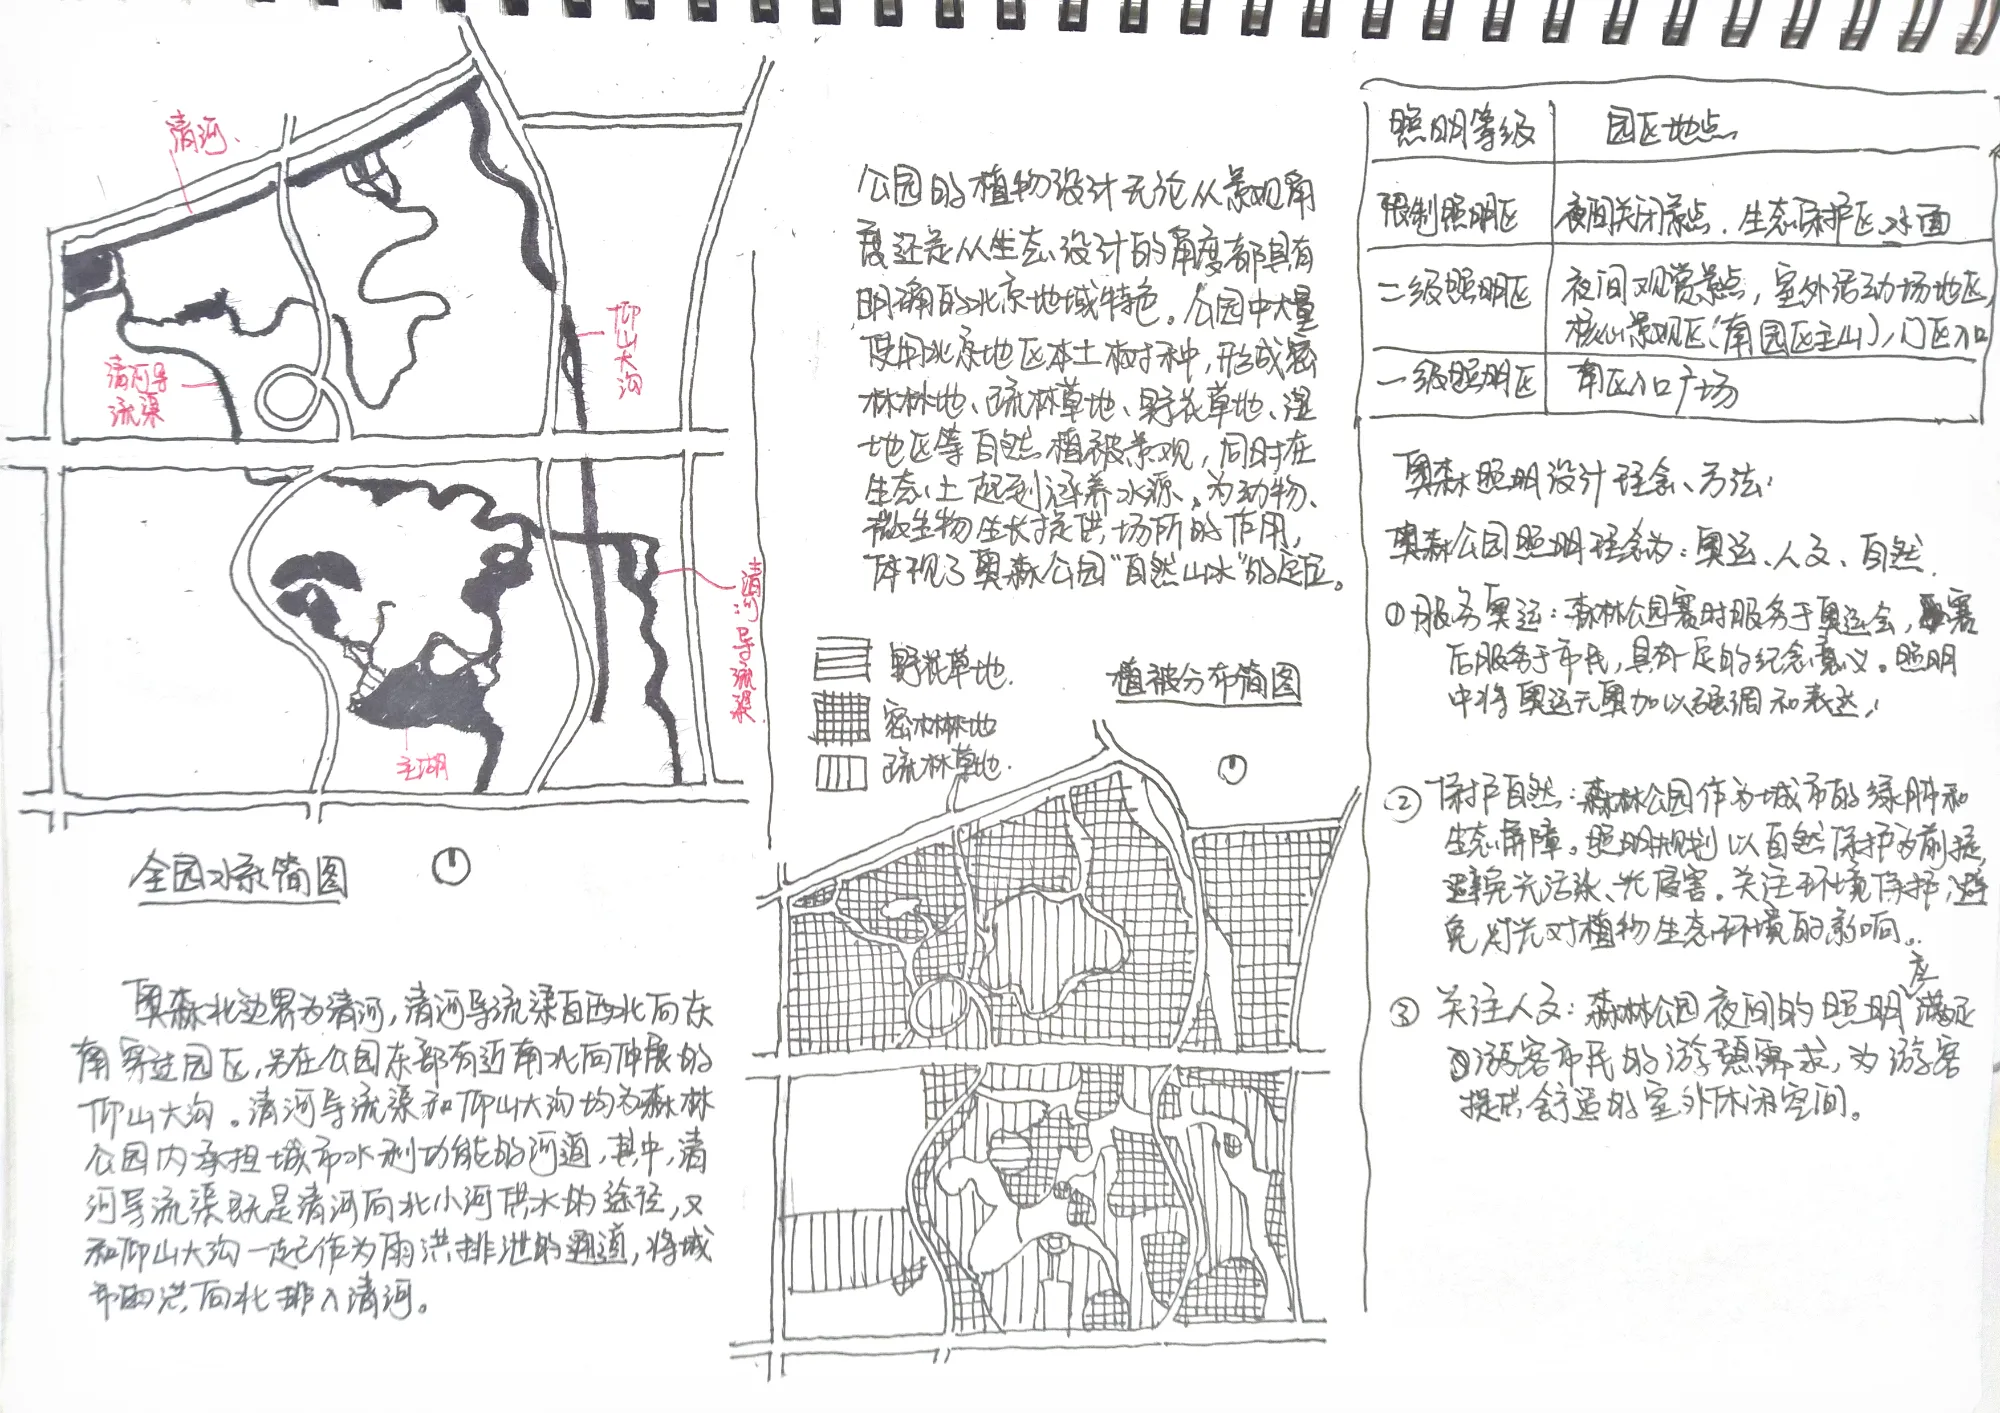 清河
仰山大沟
清河导
流渠
清河导流渠
主湖
全园水系简图
奥森北边界为清河，清河导流渠自西北向东
南穿过园区，另在公园东部有近南北向伸展的
仰山大沟。清河导流渠和仰山大沟均为森林
公园内承担城市水利功能的河道，其中，清
河导流渠既是清河向北小河供水的途径，又
和仰山大沟一起作为雨洪排泄的通道，将城
市雨洪向北排入清河。
公园的植物设计无论从景观角
度还是从生态设计的角度都具有
明确的北京地域特色。公园中大量
使用北京地区本土树种，形成密
林林地、疏林草地、野花草地、湿
地区等自然植被景观，同时在
生态上起到涵养水源、为动物、
微生物生长提供场所的作用，
体现了奥森公园“自然山水”的定位。
野花草地
密林林地
疏林草地
植被分布简图
照明等级 园区地点
限制照明区 夜间关闭景点、生态保护区、水面
二级照明区 夜间观赏景点，室外活动场地区，
核心景观区（南园区主山），门区入口
一级照明区 南区入口广场
奥森照明设计理念、方法：
奥森公园照明理念为：奥运、人文、自然
①服务奥运：森林公园赛时服务于奥运会，赛
后服务于市民，具有一定的纪念意义。照明
中将奥运元奥加以强调和表达；
②保护自然：森林公园作为城市的绿肺和
生态屏障。照明规划以自然保护为前提，
避免光污染、光侵害。关注环境保护，避
免灯光对植物生态环境的影响。
③关注人文：森林公园夜间的照明应满足
游客市民的游憩需求，为游客
提供舒适的室外休闲空间。